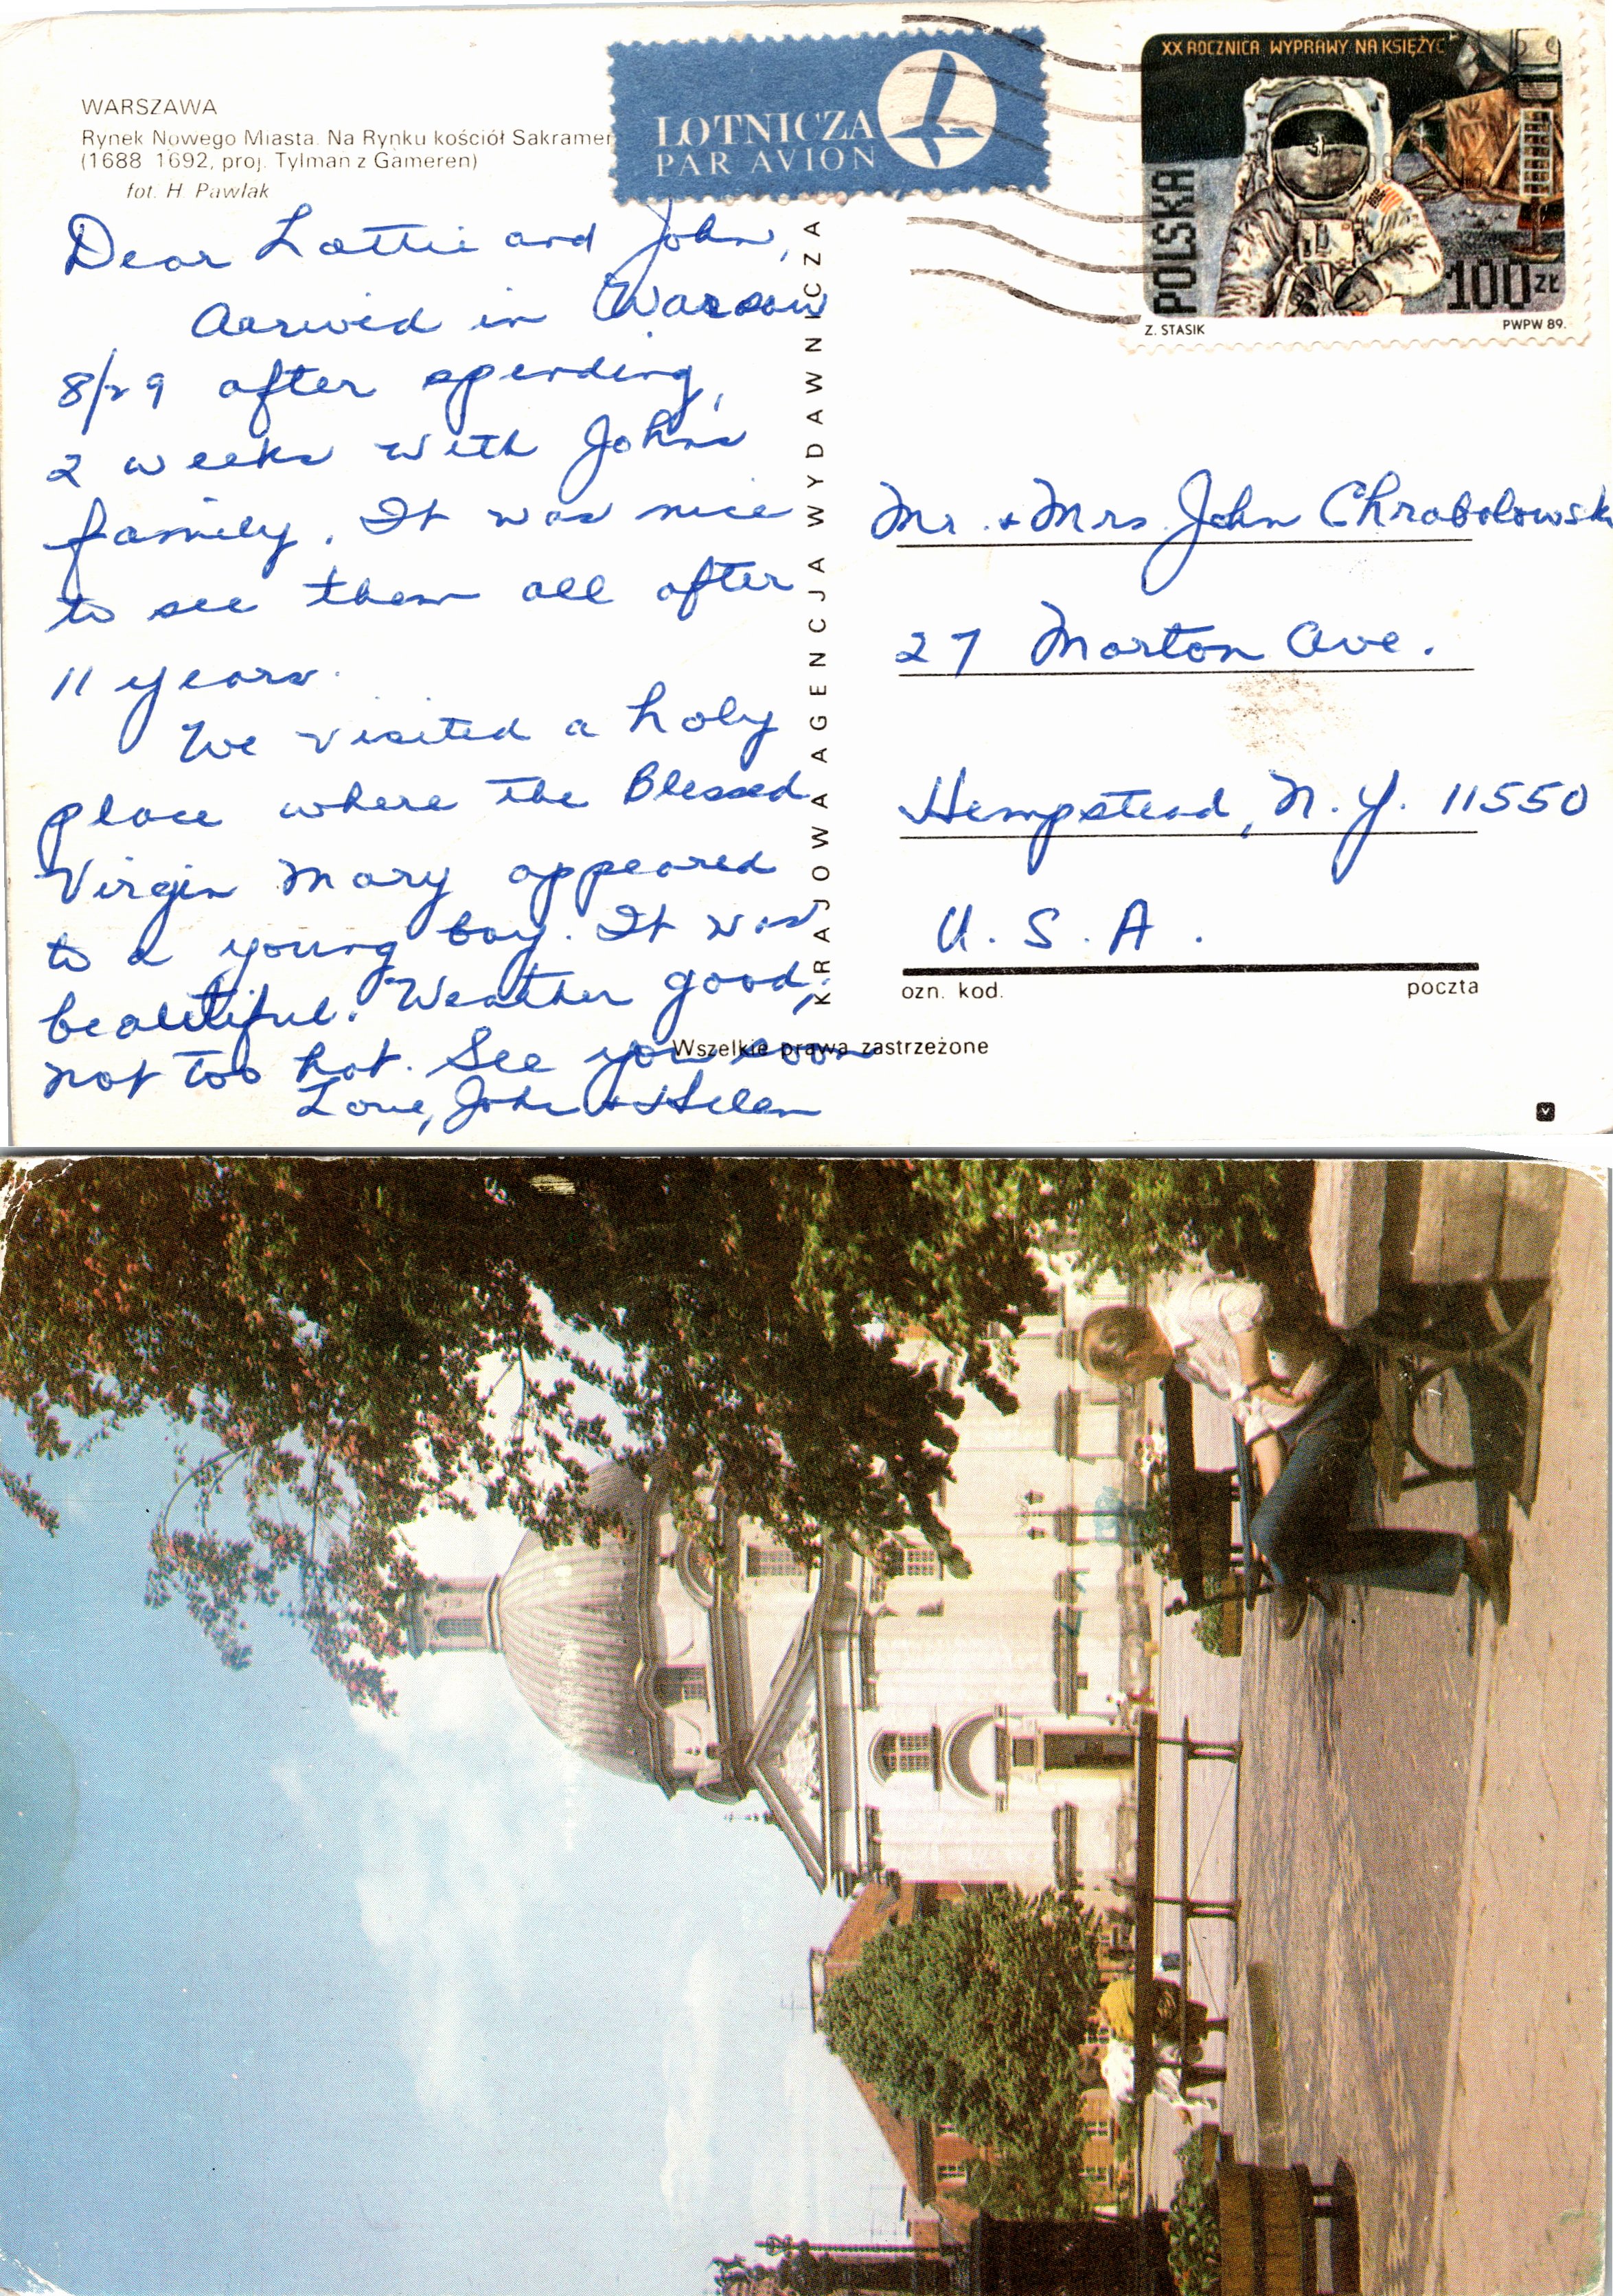 WARSZAWA
Rynek Nowego Miasta. Na Rynku kościół Sakramen
(1688 1692, proj. Tylman z Gameren)
fot. H. Pawlak
LOTNICZA
PAR AVION
XX ROCZNICA WYPRAWY NA KSIĘŻYC
POLSKA
100 ZŁ
Z. STASIK
PWPW 89.
Dear Lottie and John,
Aarived in Warsaw
8/29 after spending,
2 weeks with John's
family. It was nice
to see them all after
11 years.
We visited a holy
place where the Blessed
Virgin Mary appeared
to a young boy. It was
beautiful. Weather good,
not too hot. See you soon
Love, John & Helen
KRAJOWA AGENCJA WYDAWNICZA
Mr. & Mrs. John Chrobolowsk
27 Morton Ave.
Hempstead, N.Y. 11550
U.S.A.
ozn. kod.
poczta
Wszelkie prawa zastrzeżone